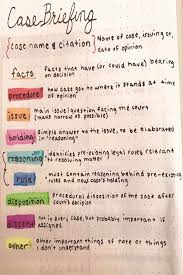 Case Briefing
case name & citation
Name of case, issuing ct,
date of opinion
facts
Facts that have (or could have) bearing
on decision
procedure
how case got to where it stands at time
of
issue
main issue/question facing the court
(may want to break
holding
Simple answer to the issue, to be elaborated
in "reasoning"
reasoning
identifies pre-existing legal rules relevant
to resolving matter
rule
must contain reasoning behind pre-exist-
ing rules and new case's holding
disposition
Procedural disposition of the case after
court's decision
dissent
Not in every case, but probably important if
assigned
other
other important things of note or things
I don't understand